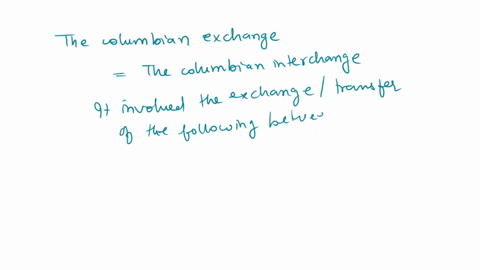 The columbian exchange
= The columbian interchange
It involved the exchange / transfer
of the following betwe